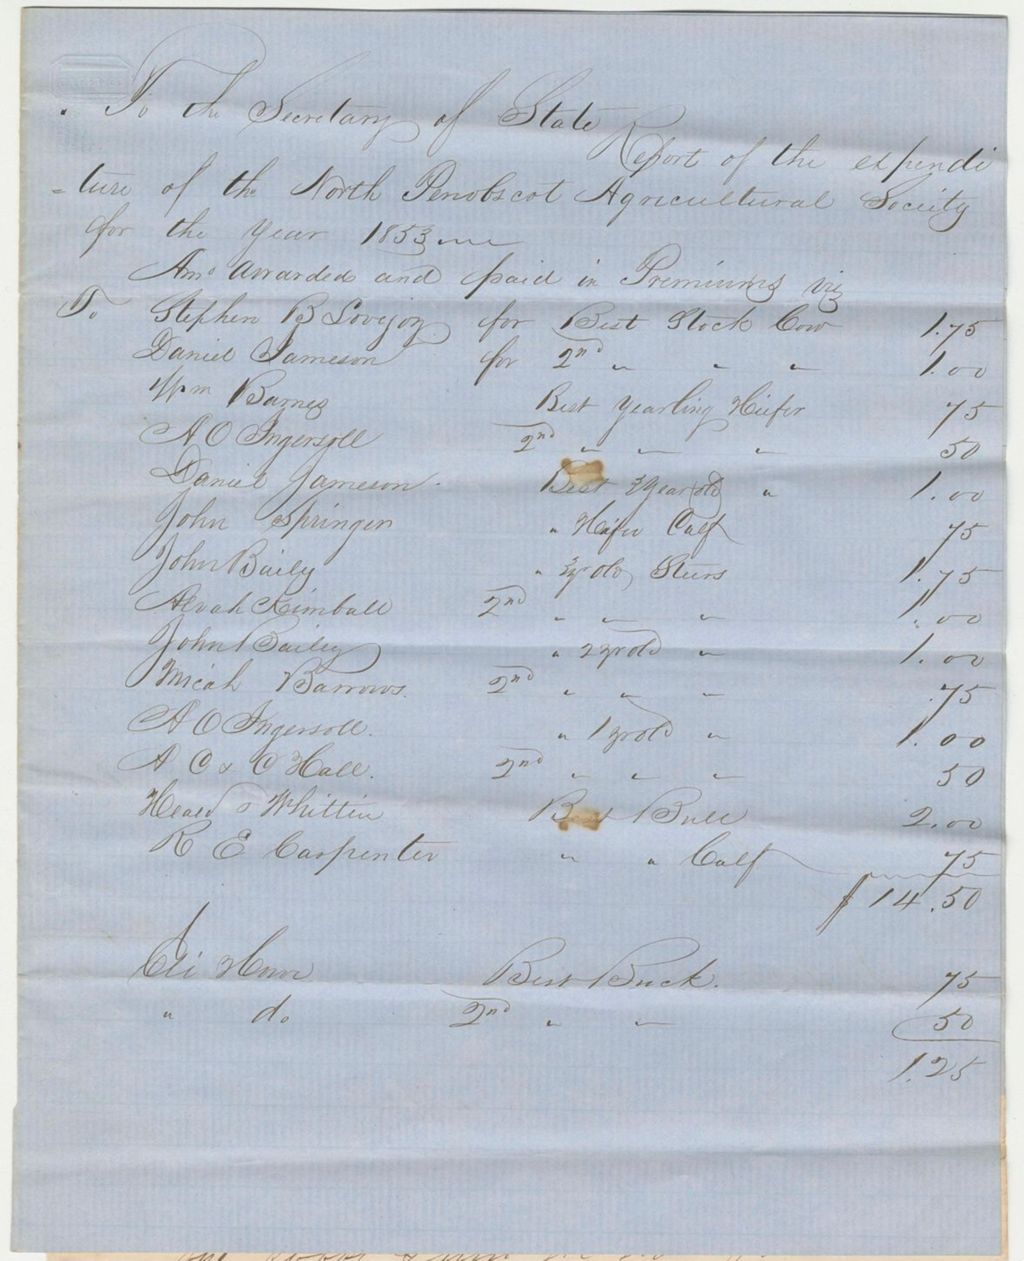 To the Secretary of State
Report of the expendi
-ture of the North Penobscot Agricultural Society
for the year 1853
Amo Awarded and paid in Premiums viz
To Stephen B Lovejoy for Best Stock Cow 1.75
Daniel Jameson for 2nd " " " 1.00
Wm Barnes Best Yearling Hiefer 75
A O Ingersoll 2nd " " " 50
Daniel Jameson. Best 2 year old " 1.00
John Springer " Heifer Calf 75
John Baily " 3 yr old Steers 1.75
Alvah Kimball 2nd " " " 1.00
John Bailey " 2 yr old " 1.00
Micah Barrows. 2nd " " " .75
A O Ingersoll. " 1 yr old " 1.00
A C & C Hall. 2nd " " " 50
Heald & Whittier Best Bull 2.00
R E Carpenter " " Calf 75
$14.50
Eli Best Buck. 75
" do 2nd " " 50
1.25